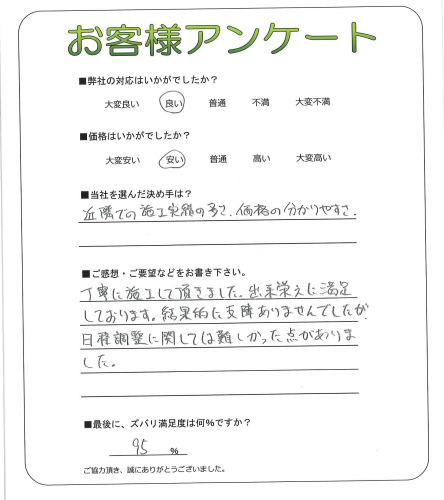 お客様アンケート
■弊社の対応はいかがでしたか？
大変良い 良い 普通 不満 大変不満
■価格はいかがでしたか？
大変安い 安い 普通 高い 大変高い
■当社を選んだ決め手は？
近隣での施工実績の多さ、価格の分かりやすさ、
■ご感想・ご要望などをお書き下さい。
丁寧に施工して頂きました。出来栄えに満足
しております。結果的に支障ありませんでしたが、
日程調整に関しては難しかった点がありま
した。
■最後に、ズバリ満足度は何％ですか？
95 %
ご協力頂き、誠にありがとうございました。